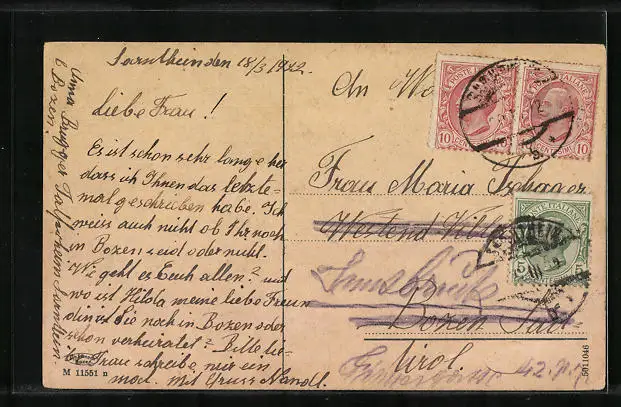 Sarntheinden 18/3 1922.
Liebe Frau!
Es ist schon sehr lange her
dass ich Ihnen das letzte-
mal geschrieben habe. Ich
weiss auch nicht ob Ihr noch
in Bozen seid oder nicht.
Wie geht es Euch allen? und
wo ist Hilda meine liebe Freun
din ist Sie noch in Bozen oder
schon verheiratet? Bitte lie-
be Frau schreibe mir ein
mal. mit Gruss Nandl.
b. Bozen.
M 11551 n
An
Frau Maria Tschager
Westend Vill
Innsbruck
Bozen
Tirol
42.
5011046
POSTE ITALIANE
10 CENTESIMI
POSTE ITALIANE
CENTESIMI 10
POSTE ITALIANE
5